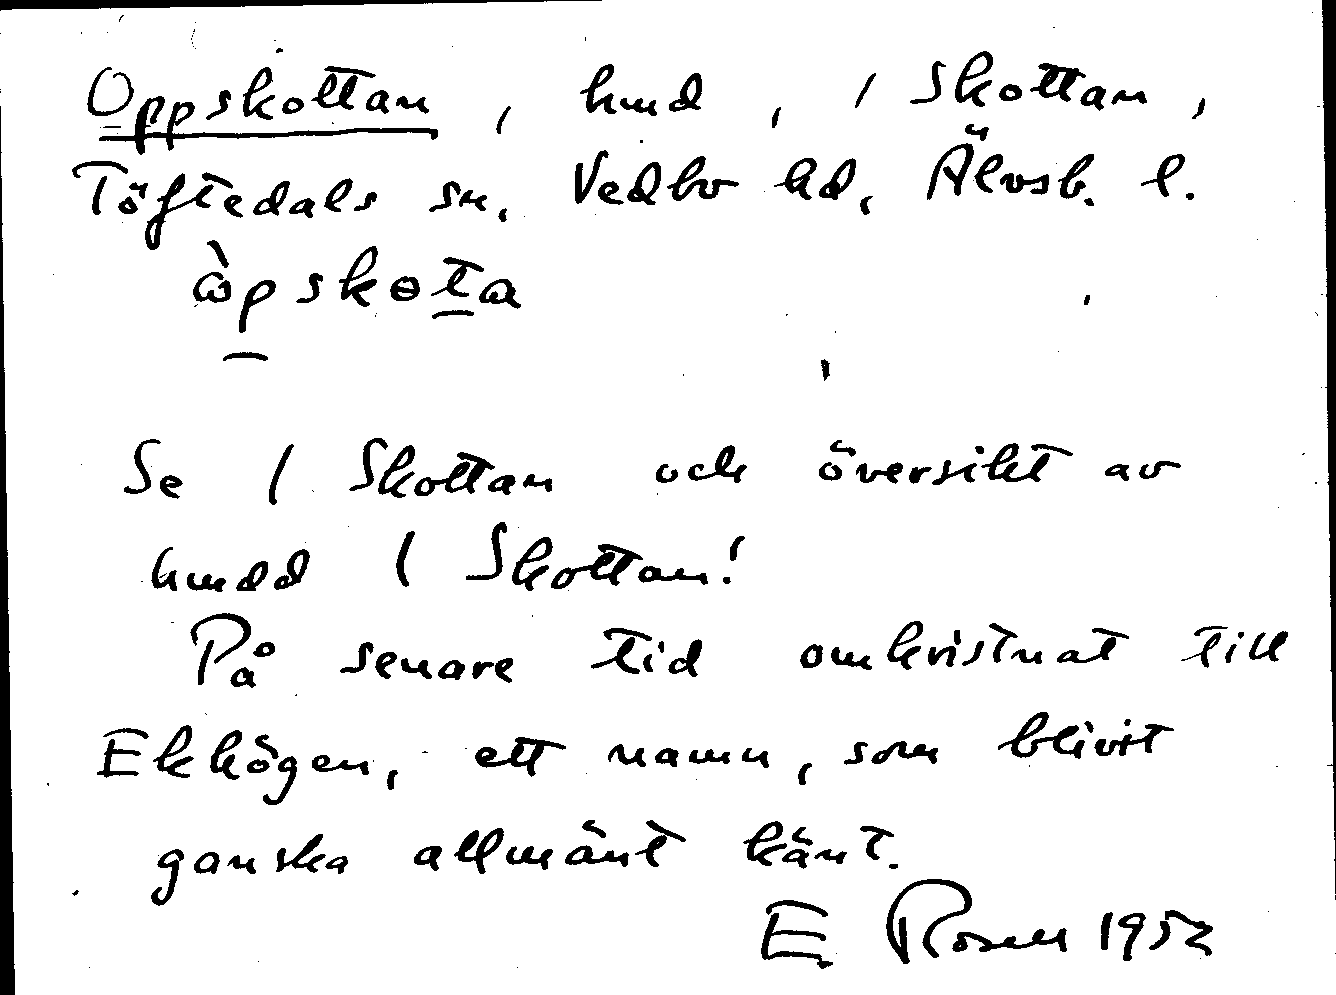 Oppskottan, hmd, 1 Skottan,
Töftedals sn, Vedbo hd, Älvsb. l.
òpskɵta
Se 1 Skottan och översikt av
hmdd 1 Skottan!
På senare tid omkristnat till
Ekhögen, ett namn, som blivit
ganska allmänt känt.
E. Rosell 1952